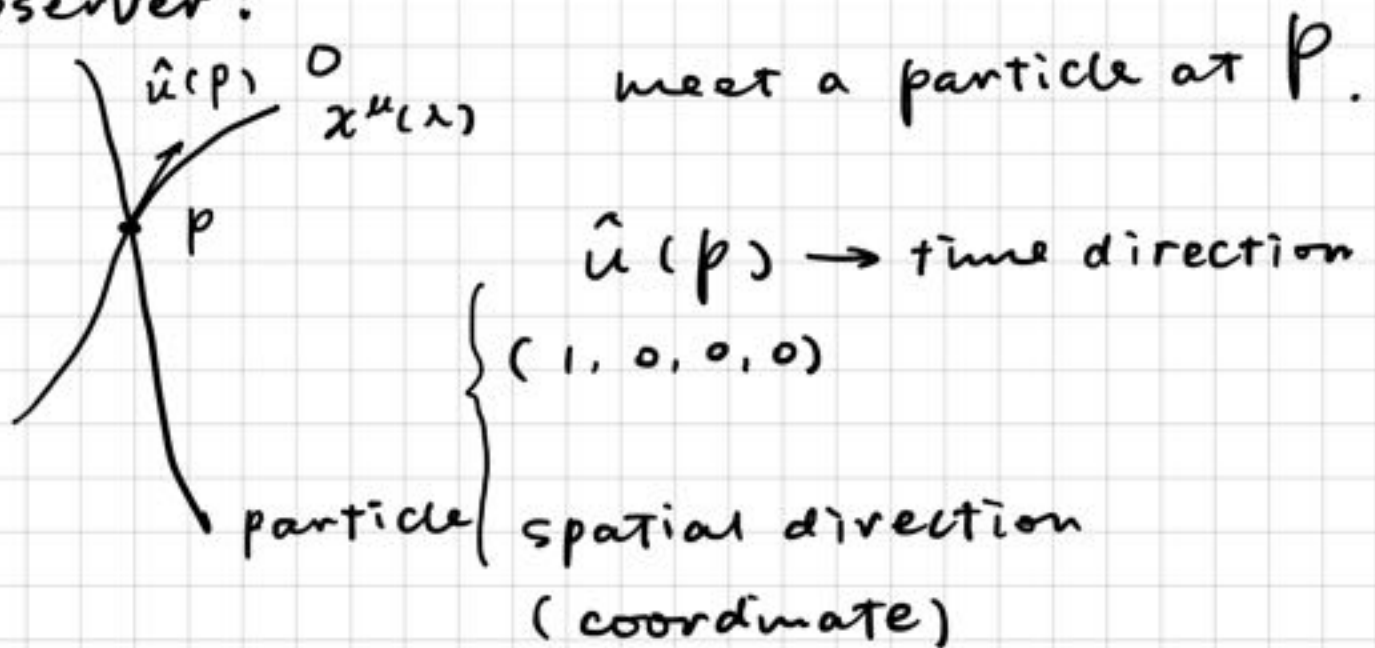 server.
û(p) O
x^μ(λ)
meet a particle at P.
p
û(p) → time direction
(1, 0, 0, 0)
particle
spatial direction
(coordinate)